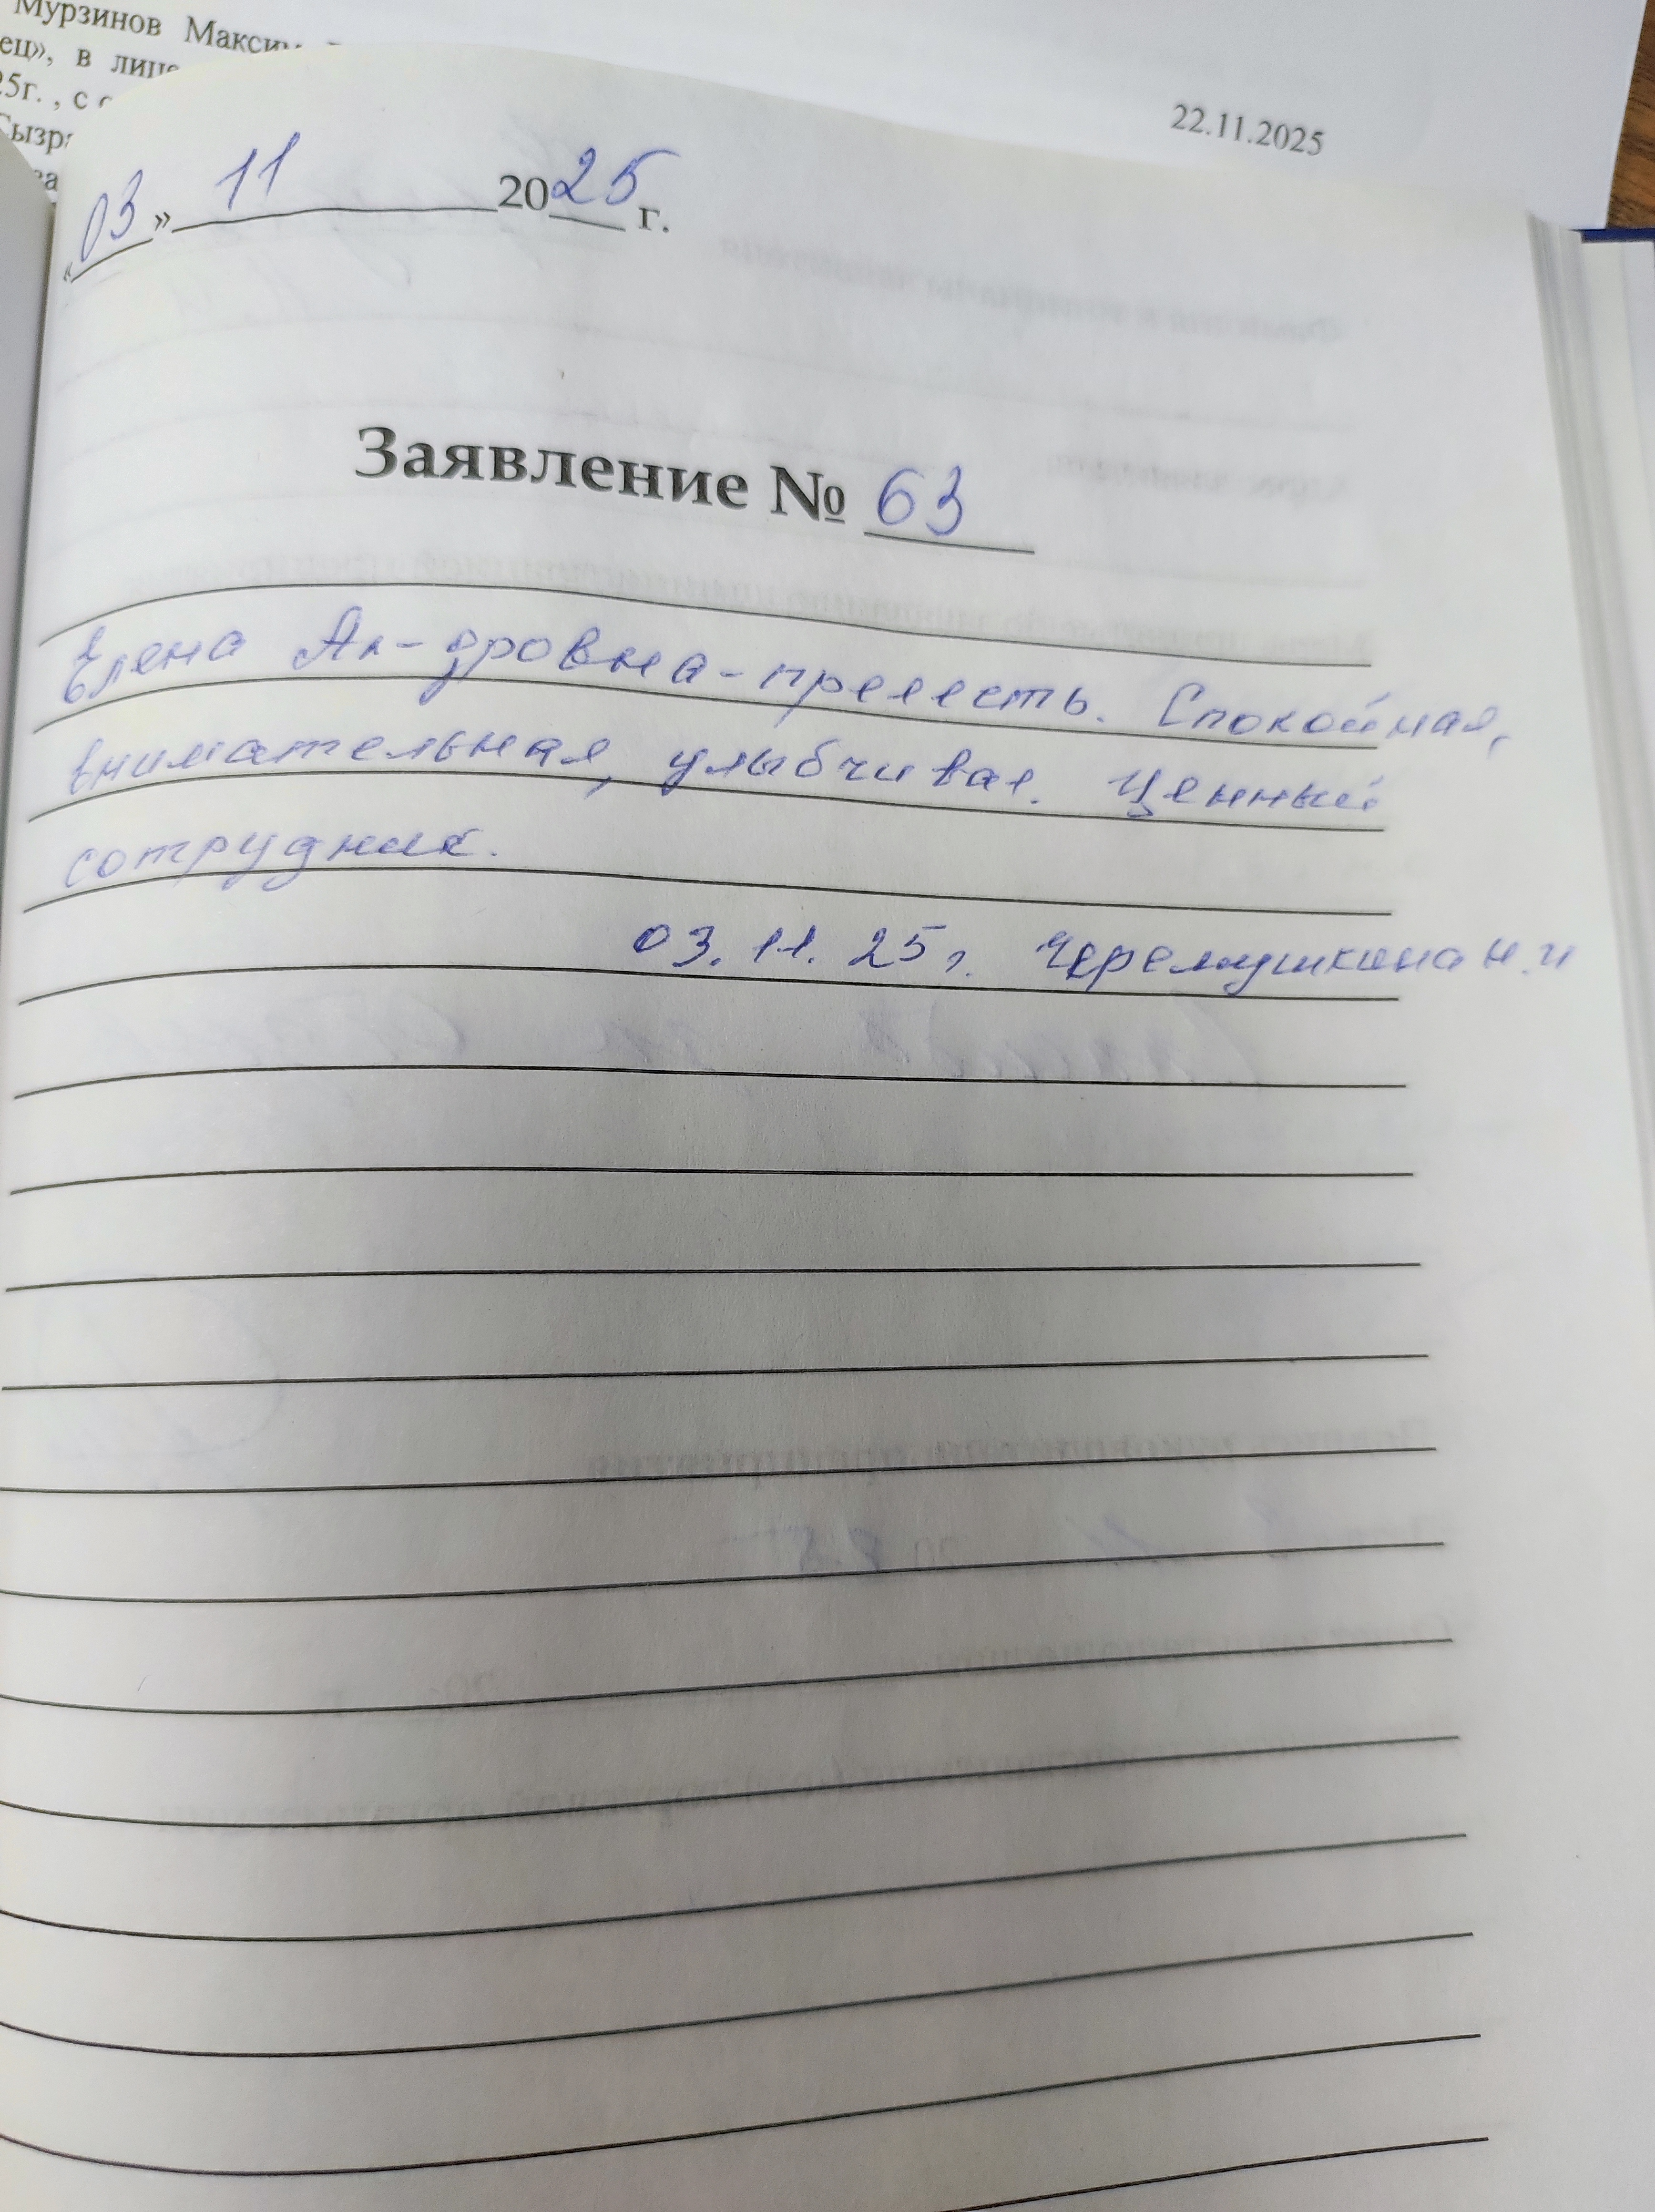 Мурзинов Максим
ец», в лице
25г. , с
Сызра
22.11.2025
«03» 11 2025 г.
Заявление № 63
Елена Ал-дровна - прелесть. Спокойная,
внимательная, улыбчивая. Ценный
сотрудник.
03.11.25г. Черемушкина Н.И